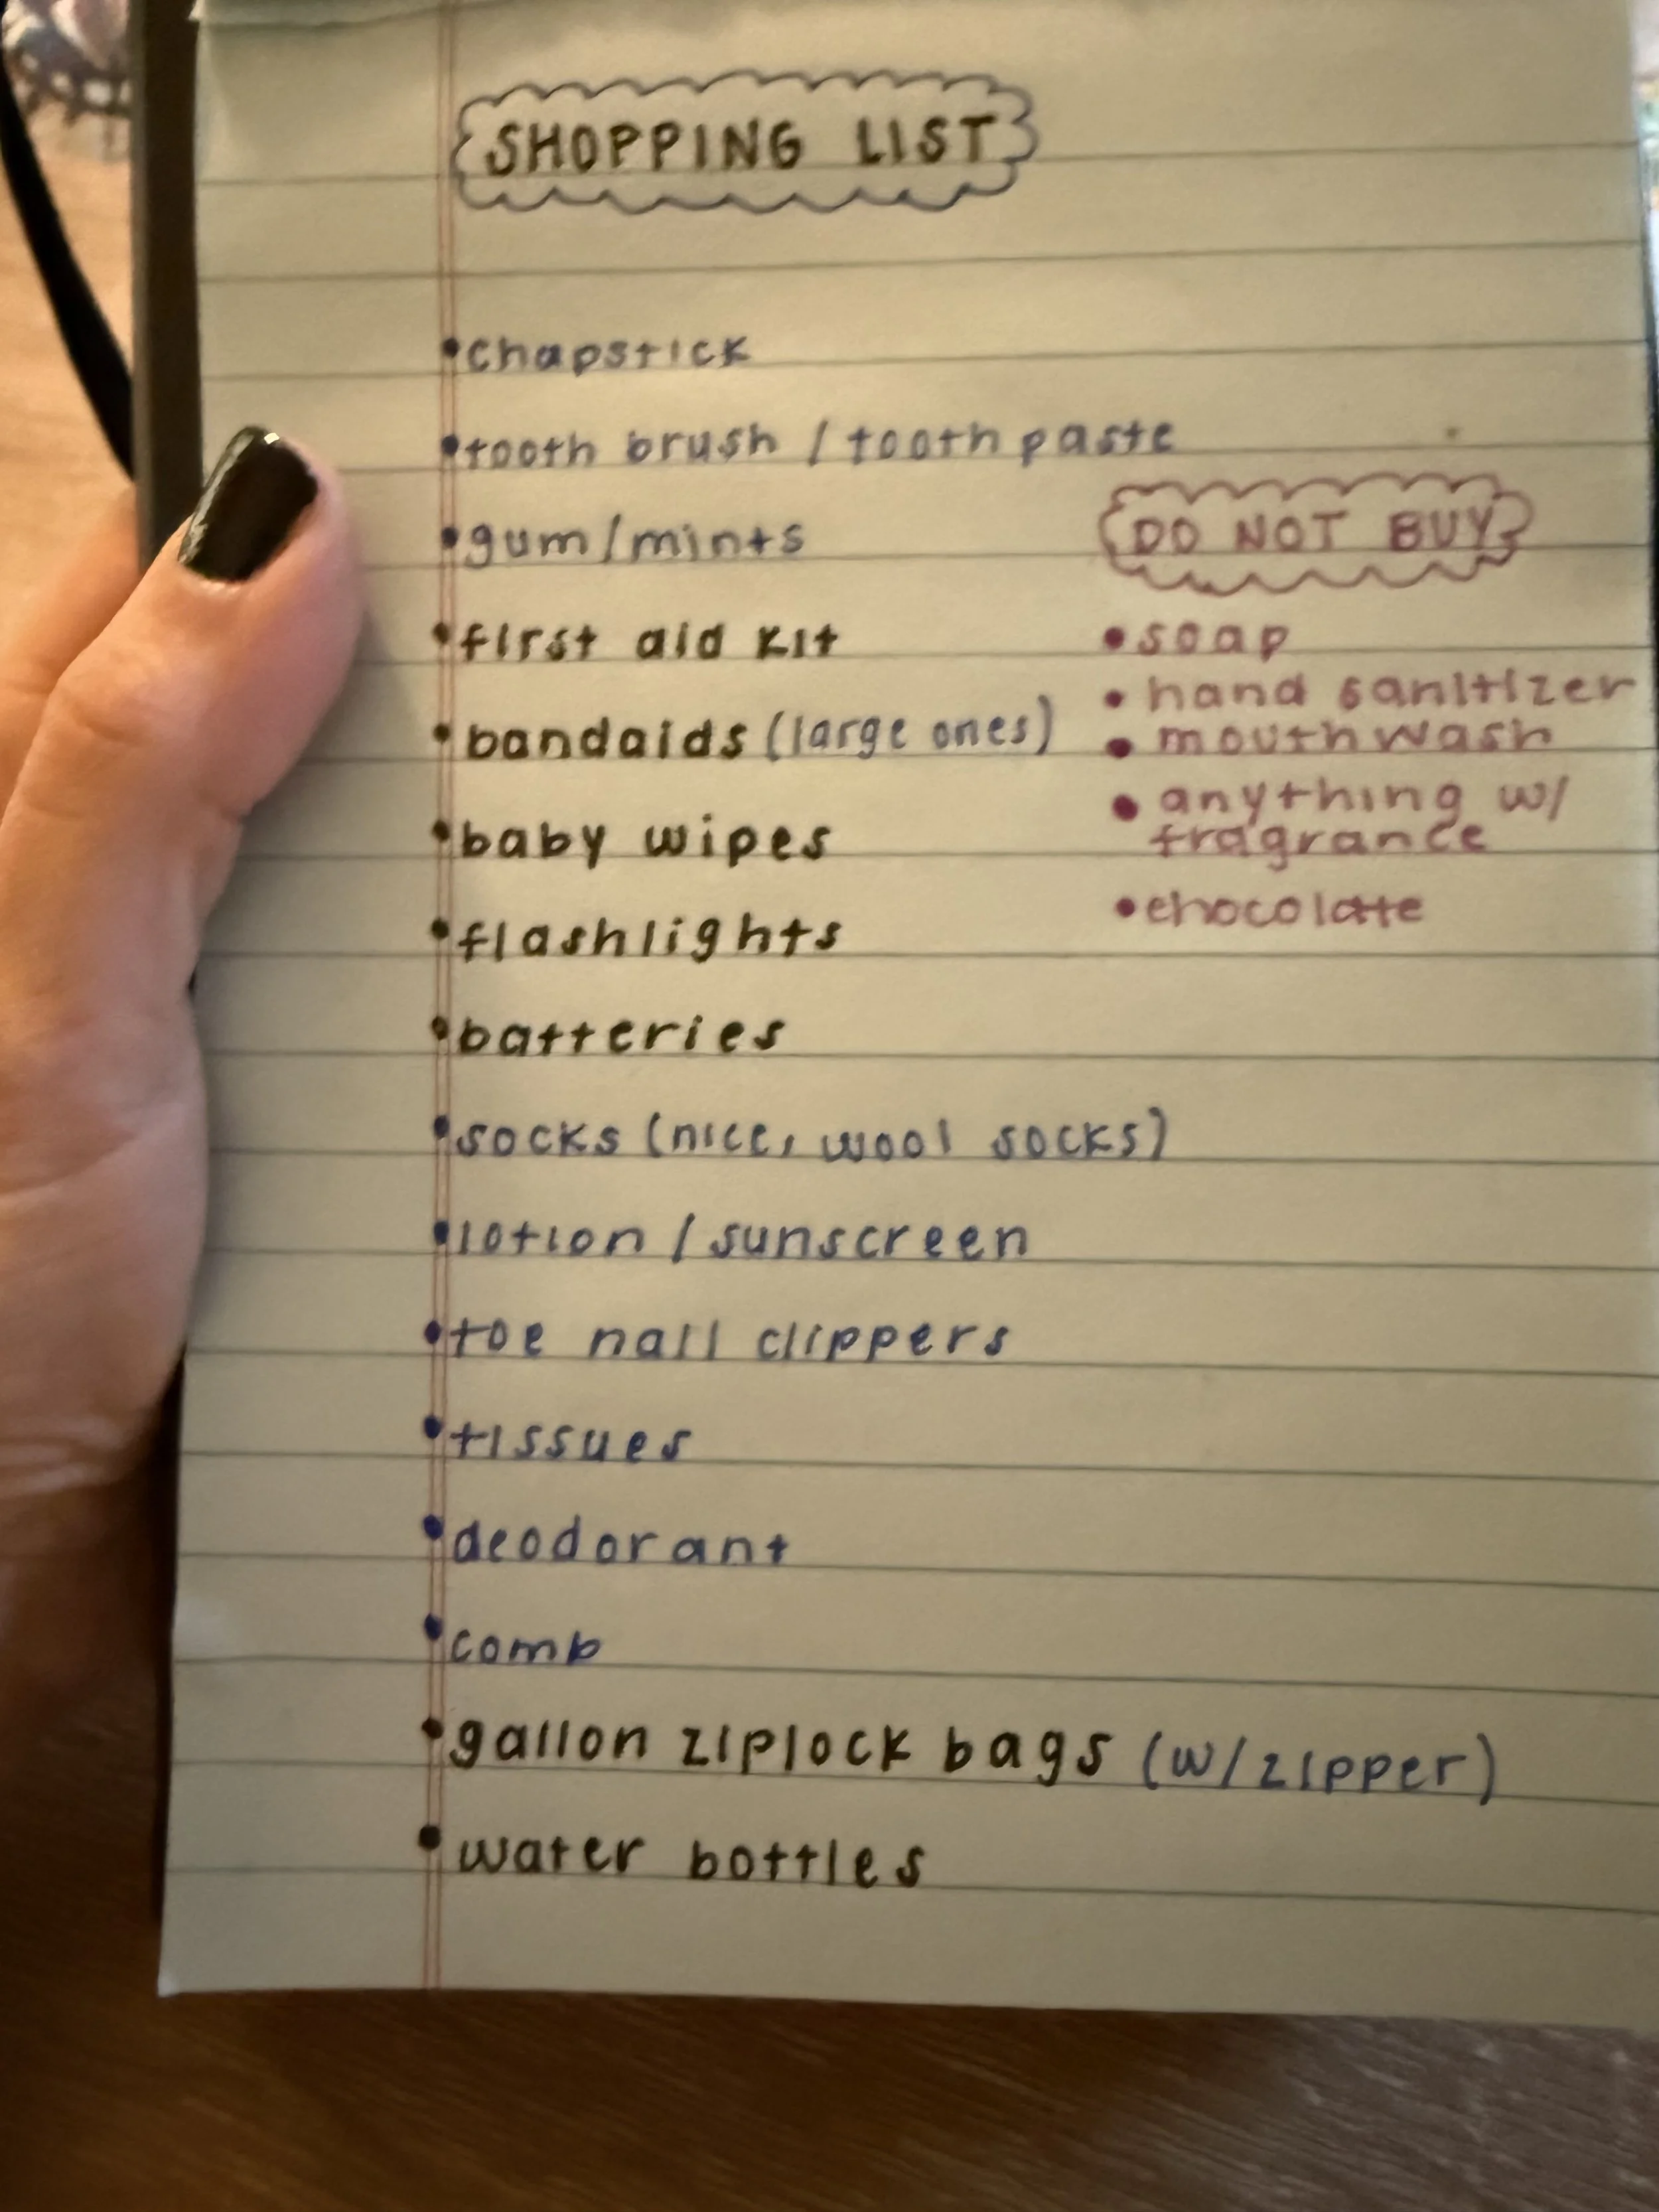 SHOPPING LIST
•chapstick
•tooth brush / tooth paste
•gum/mints
•first aid kit
•bandaids (large ones)
•baby wipes
•flashlights
•batteries
•socks (nice, wool socks)
•lotion / sunscreen
•toe nail clippers
•tissues
•deodorant
•comb
•gallon ziplock bags (w/zipper)
•water bottles
DO NOT BUY
•soap
•hand sanitizer
•mouthwash
•anything w/
fragrance
•chocolate